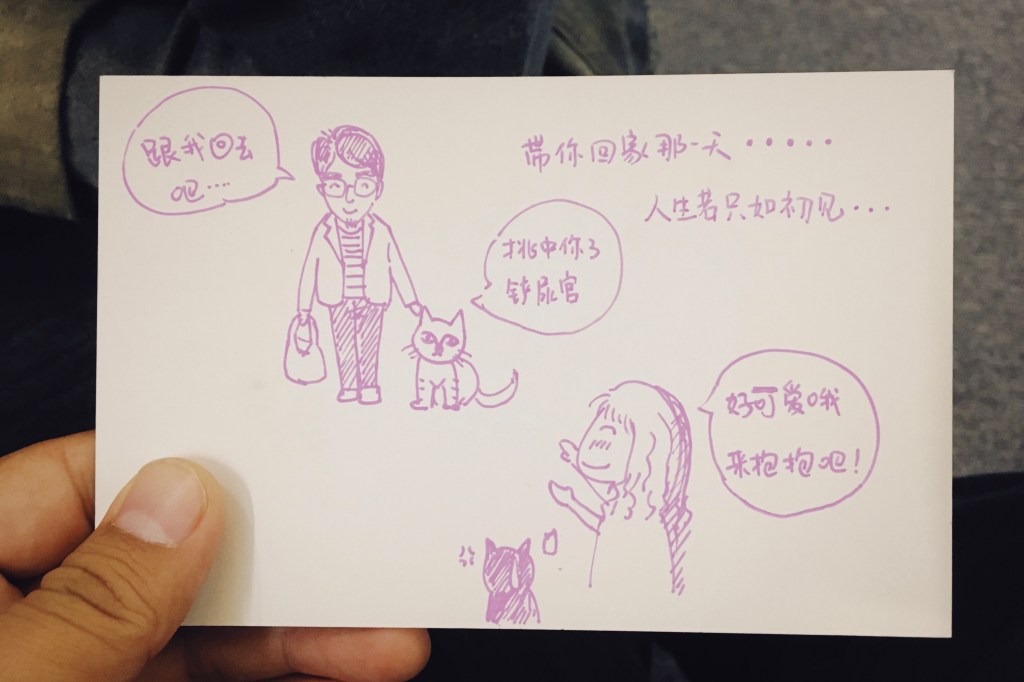 跟我回去
吧····
带你回家那一天·····
人生若只如初见···
挑中你了
铲屎官
好可爱哦
来抱抱吧!